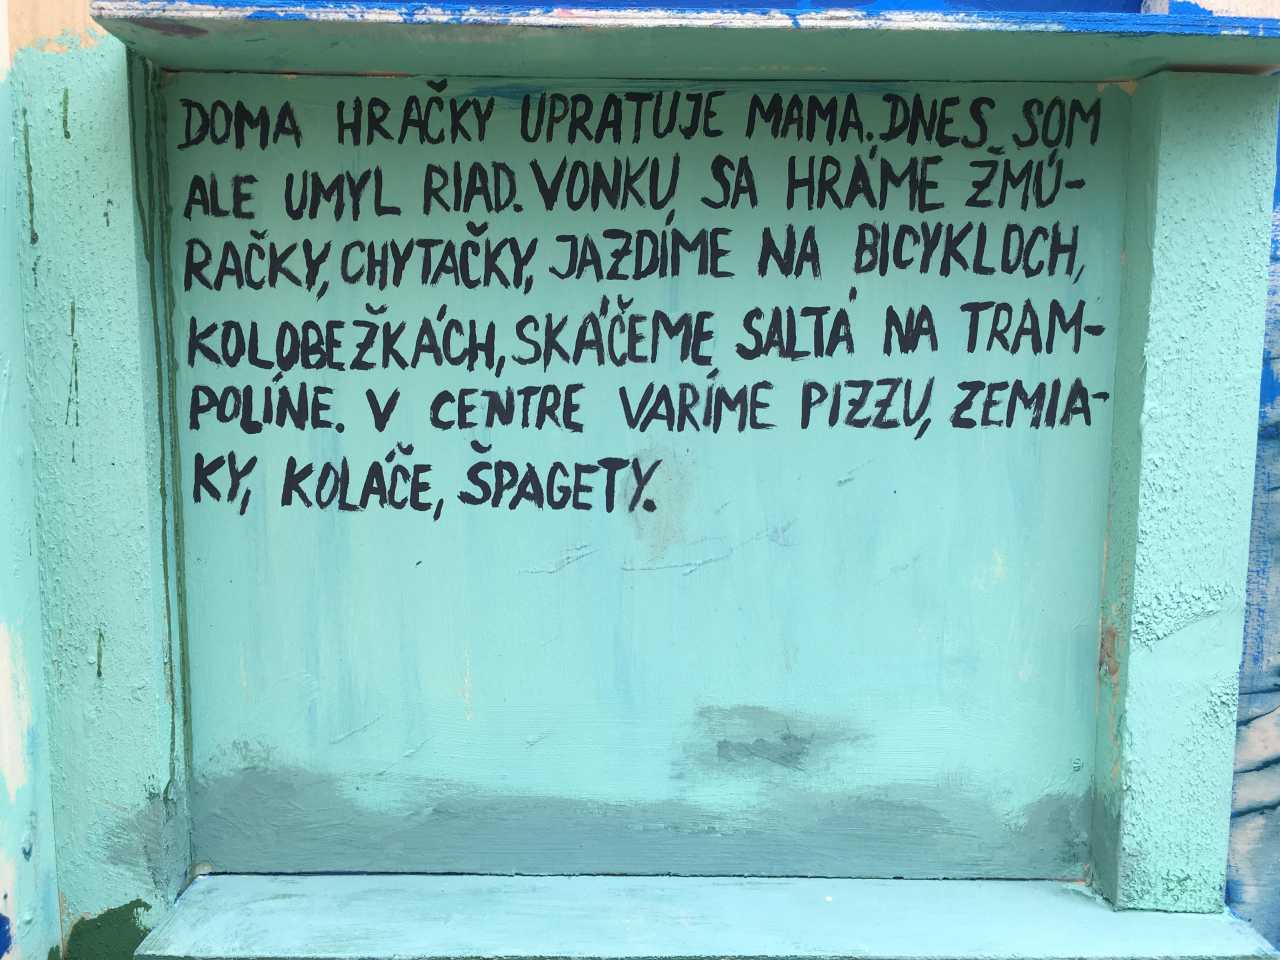 DOMA HRAČKY UPRATUJE MAMA. DNES SOM
ALE UMYL RIAD. VONKU SA HRÁME ŽMÚ-
RAČKY, CHYTAČKY, JAZDÍME NA BICYKLOCH,
KOLOBEŽKÁCH, SKÁČEME SALTÁ NA TRAM-
POLÍNE. V CENTRE VARÍME PIZZU, ZEMIA-
KY, KOLÁČE, ŠPAGETY.